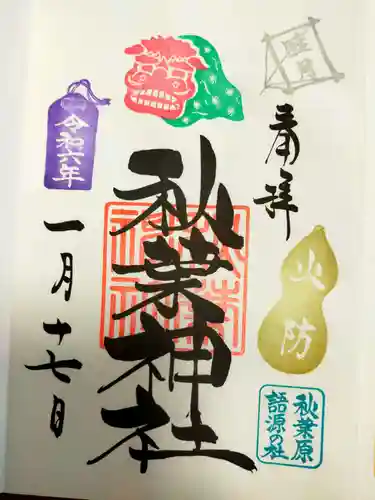 睦月
奉拝
火防
秋葉原
語源の社
秋葉神社
令和六年
一月十七日